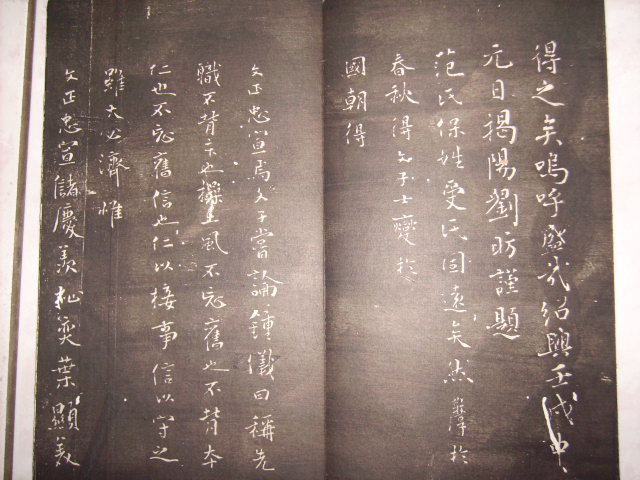 得之矣嗚呼盛哉紹興壬戌中
元日揭陽劉昉謹題
范氏保姓受氏固遠矣然難得於
春秋得文子士燮於
國朝得
文正忠宣焉文子嘗論鍾儀曰稱先
職不背本也操土風不忘舊也不背本
仁也不忘舊信也仁以接事信以守之
雖大必濟惟
文正忠宣儲慶羨祉奕葉顯美